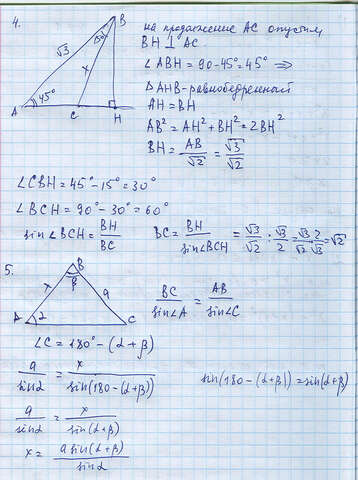 4.
B
√3
x
45°
A
C
H
на продолжение AC опустим
BH ⊥ AC
∠ABH = 90 - 45° = 45° ⇒
△AHB - равнобедренный
AH = BH
AB² = AH² + BH² = 2BH²
BH = AB/√2 = √3/√2
∠CBH = 45° - 15° = 30°
∠BCH = 90° - 30° = 60°
sin∠BCH = BH/BC
BC = BH/sin∠BCH = √3/√2 : √3/2 = √3/√2 · 2/√3 = √2
5.
B
β
x
a
A
α
C
BC/sin∠A = AB/sin∠C
∠C = 180° - (α + β)
a/sinα = x/sin(180 - (α + β))
sin(180 - (α + β)) = sin(α + β)
a/sinα = x/sin(α + β)
x = a sin(α + β)/sinα